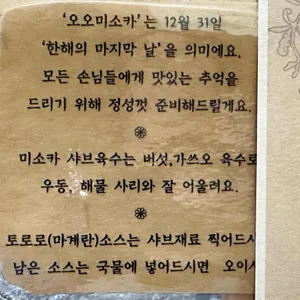 ‘오오미소카’는 12월 31일
‘한해의 마지막 날’을 의미에요.
모든 손님들에게 맛있는 추억을
드리기 위해 정성껏 준비해드릴게요.
미소카 샤브육수는 버섯,가쓰오 육수로
우동, 해물 사리와 잘 어울려요.
토로로(마계란)소스는 샤브재료 찍어드시
남은 소스는 국물에 넣어드시면 오이시